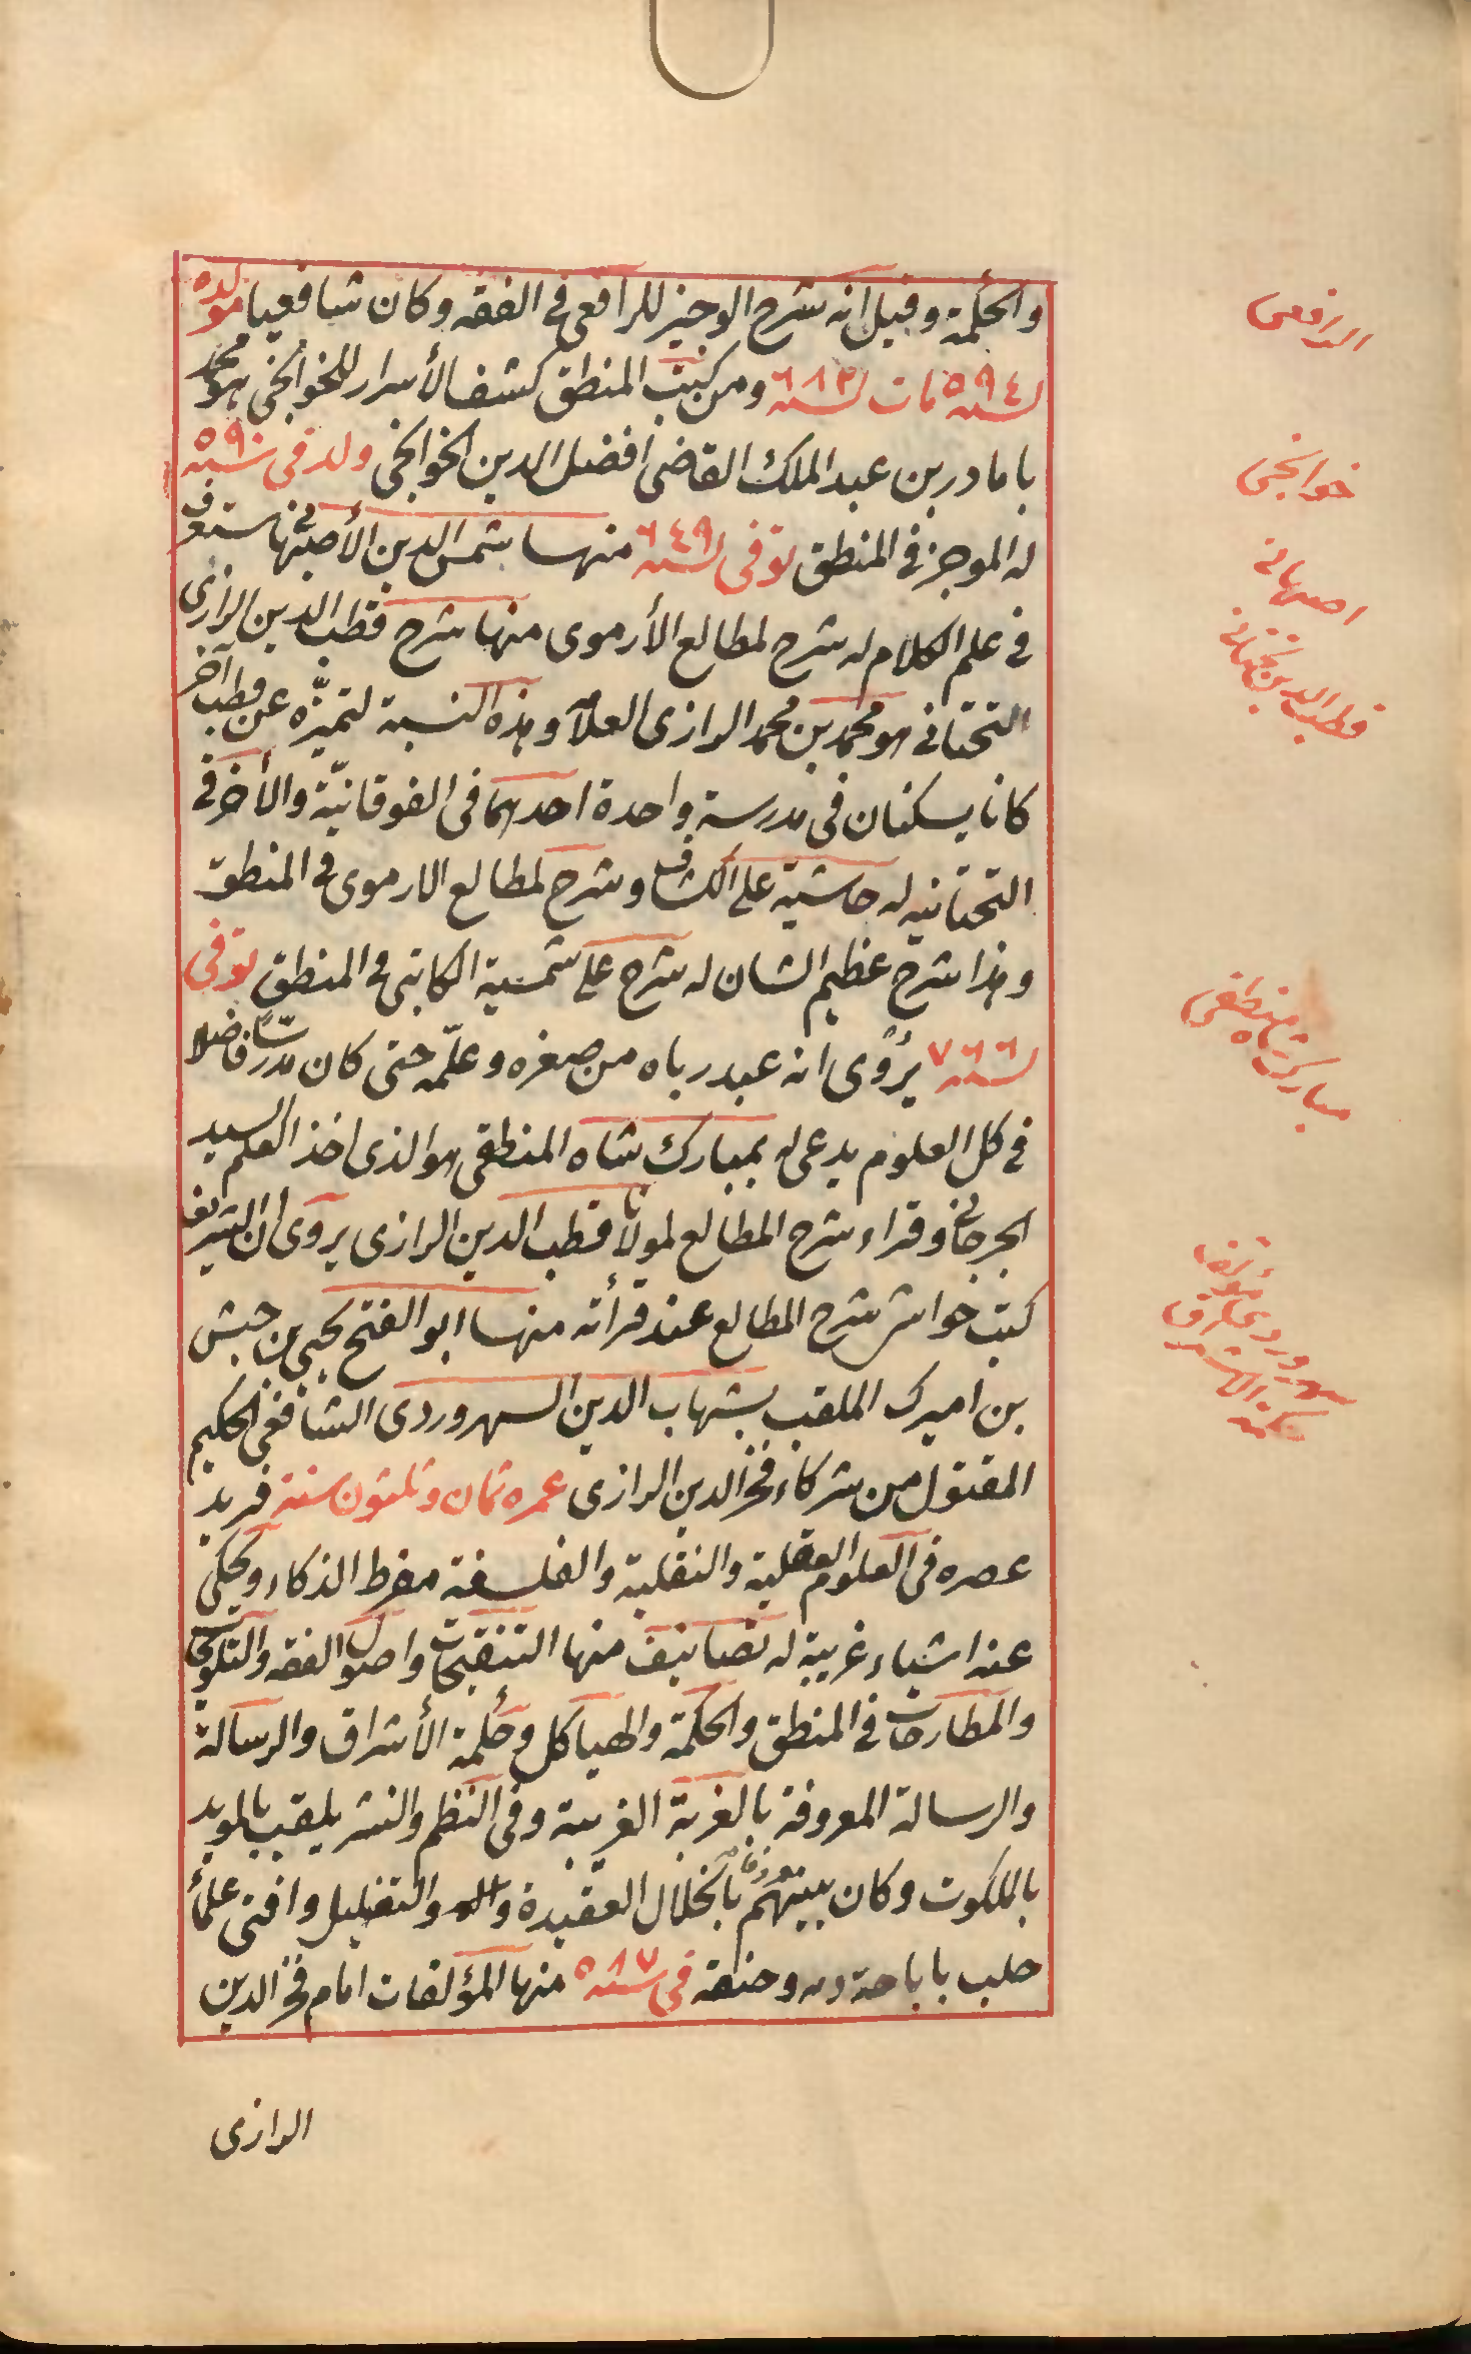 والحكمة وقيل انه شرح الوجيز للرافعى فى الفقه وكان شافعيا مولده
لسنه ٥٩٤ مات لسنه ٦٨٢ ومن كتب المنطق كشف الأسرار للخوانجى هو محمد
بامادر بن عبد الملك القاضى افضل الدين الخوانجى ولد فى سنه ٥٩٠
له الموجز فى المنطق توفى لسنه ٦٤٩ منها شمس الدين الأصبهانى
فى علم الكلام له شرح لمطالع الأرموى منها شرح قطب الدين الرازى
التحتانى هو محمد بن محمد الرازى العلا وهذه النسبة لتميزه عن قطب آخر
كانا يسكنان فى مدرسة واحدة احدهما فى الفوقانيّة والأخر فى
التحتانيه له حاشية على الكشاف وشرح لمطالع الارموى فى المنطق
وهذا شرح عظيم الشان له شرح على شمسية الكاتبى فى المنطق توفى
لسنه ٧٦٦ يرُوى انه عبد رباه من صغره وعلّمه حتى كان مدرّسا فاضلا
فى كل العلوم يدعى له بمبارك شاه المنطقى هو الذى اخذ العلم السيد
الجرجانى وقراء شرح المطالع لمولانا قطب الدين الرازى يروى ان الشريف
كتب حواشى شرح المطالع عند قرأته منها ابو الفتح يحيى بن حبش
بن اميرك الملقب بشهاب الدين السهروردى الشافعى الحكيم
المقتول من شركاء فخر الدين الرازى عمره ثمان وثلثون سنة فريد
عصره فى العلوم العقلية والنقلية والفلسفة مفرط الذكاء ويحكى
عنه اشياء غريبة له تصانيف منها التنقيحات واصول الفقه والتلويحات
والمطارحات فى المنطق والحكمة والهياكل وحكمة الأشراق والرسالة
والرسالة المعروفة بالغربة الغريبة وفى النظم والنثر يلقب بالمويد
بالملكوت وكان بينهم بانحلال العقيدة والتضليل وافتى علماء
حلب باباحة دمه وخنقه فى سنه ٥٨٧ منها المؤلفات امام فخر الدين
الرازى
الرافعى
خوانجى
اصبهانى
قطب الدين تحتانى
مبارك شاه منطقى
مؤلف
سهروردى
حكمة الاشراق